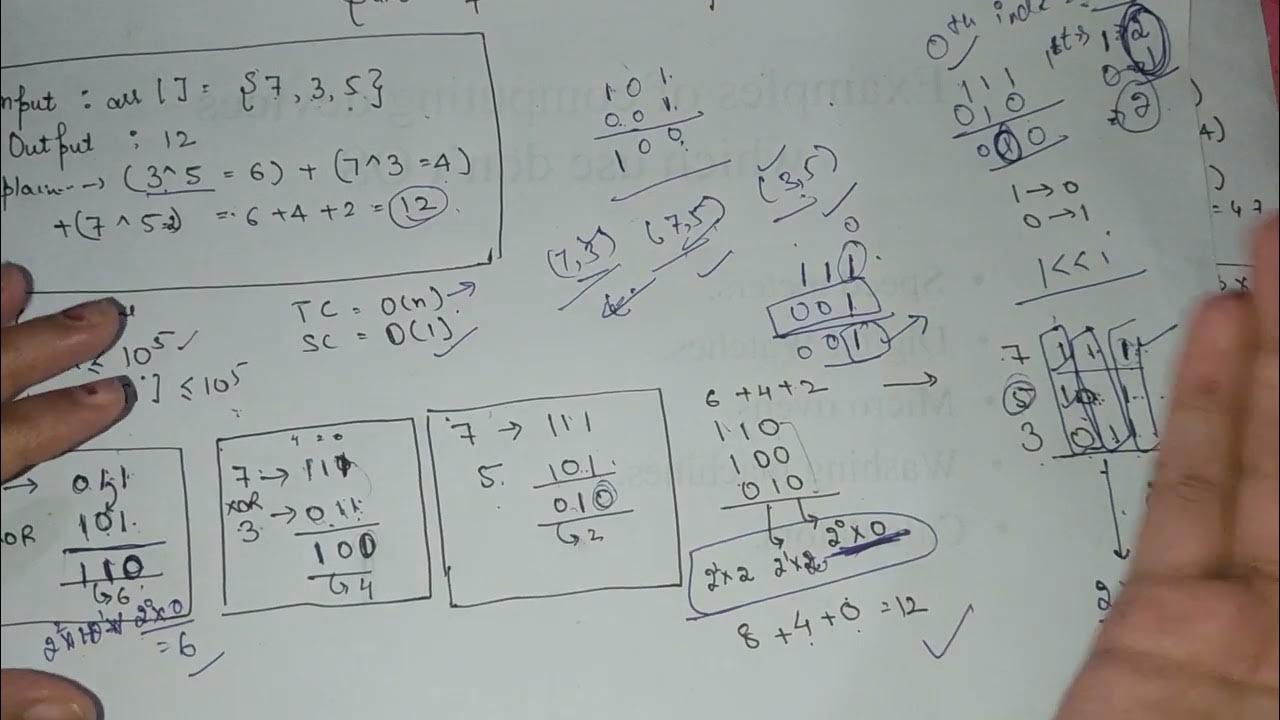 nput : arr [ ] = {7, 3, 5}
Output : 12
plain → (3^5 = 6) + (7^3 = 4)
+ (7 ^ 5 = 2) = 6 + 4 + 2 = 12
TC = O(n) →
SC = O(1)
≤ 10^5
] ≤ 10^5
→ 011
OR 101
110
↳ 6
= 6
4 2 0
7 → 111
XOR
3 → 011
100
↳ 4
7 → 111
5. 101
010
↳ 2
101
001
100
(7,3) (7,5) (3,5)
0
111
001
001
6 + 4 + 2 →
110
100
010
2^2 x 2 2^1 x 2 2^0 x 0
8 + 4 + 0 = 12
0th inde
111
010
010
1 → 0
0 → 1
1 << i
7 1 1 1
5 1 0 1
3 0 1
4)
)
= 4 7
Examples of computing devices
which use
Washing machines.